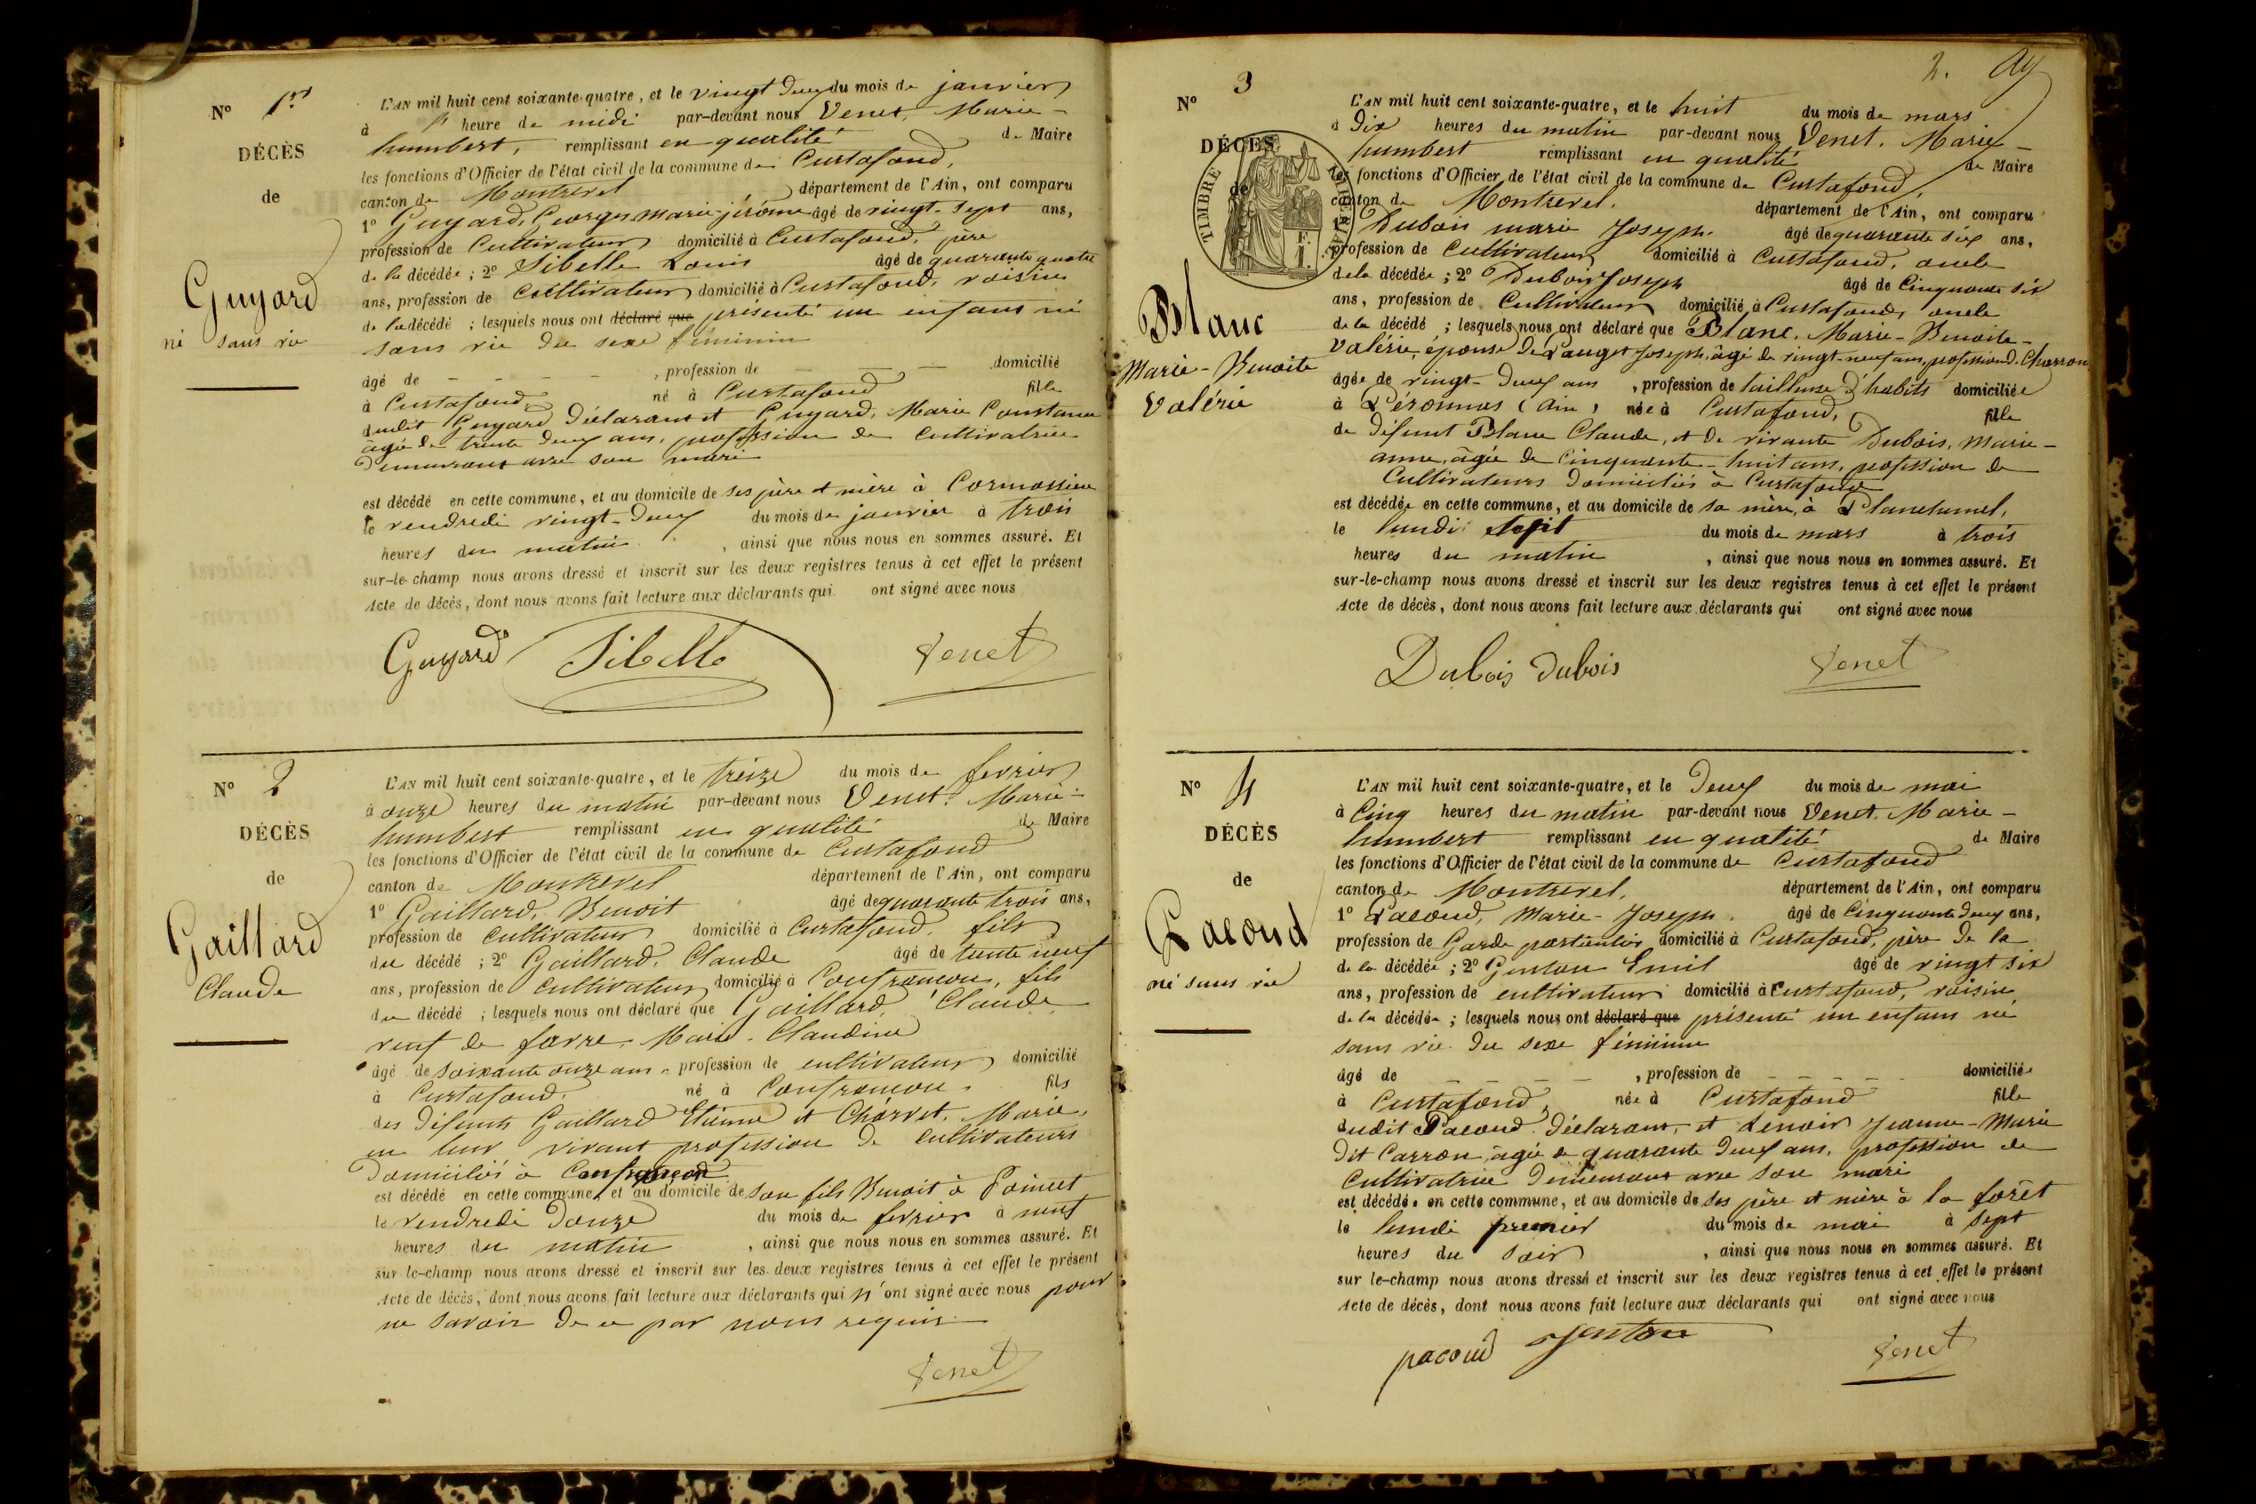 N° 1er
DÉCÈS
de
Guyard
né sans vie
L'AN mil huit cent soixante-quatre, et le vingt deux du mois de janvier
à 1 heure de midi par-devant nous Venet, Marie-
humbert, remplissant en qualité de Maire
les fonctions d'Officier de l'état civil de la commune de Curtafond,
canton de Montrevel département de l'Ain, ont comparu
1° Guyard, Georges marie jérôme âgé de vingt-sept ans,
profession de Cultivateur domicilié à Curtafond, père
de la décédée ; 2° Sibelle Louis âgé de quarante quatre
ans, profession de Cultivateur domicilié à Curtafond, voisin
de la décédé ; lesquels nous ont déclaré que présenté un enfant né
sans vie du sexe féminin
âgé de , profession de domicilié
à Curtafond né à Curtafond fille
dudit Guyard Déclarant et Guyard, Marie Constance
âgée de trente deux ans, profession de cultivatrice
Demeurant avec son mari
est décédé en cette commune, et au domicile de ses père et mère à Cormassien
le vendredi vingt-deux du mois de janvier à trois
heures du matin , ainsi que nous nous en sommes assuré. Et
sur-le-champ nous avons dressé et inscrit sur les deux registres tenus à cet effet le présent
Acte de décès, dont nous avons fait lecture aux déclarants qui ont signé avec nous
Guyard Sibelle Venet
N° 2
DÉCÈS
de
Gaillard
Claude
L'AN mil huit cent soixante-quatre, et le treize du mois de fevrier
à onze heures du matin par-devant nous Venet. Marie-
humbert remplissant en qualité de Maire
les fonctions d'Officier de l'état civil de la commune de Curtafond
canton de Montrevel département de l'Ain, ont comparu
1° Gaillard, Benoit âgé de quarante trois ans,
profession de cultivateur domicilié à Curtafond, fils
du décédé ; 2° Gaillard, Claude âgé de trente neuf
ans, profession de cultivateur domicilié à Confrançon, fils
du décédé ; lesquels nous ont déclaré que Gaillard, Claude
veuf de favre, Marie-Claudine
âgé de soixante onze ans, profession de cultivateur domicilié
à Curtafond, né à Confrançon, fils
des défunts Gaillard Etienne et Charvet, Marie,
en leur vivant profession de cultivateurs
Domiciliés à Confrançon
est décédé en cette commune, et au domicile de son fils Benoit à Poincet
le vendredi douze du mois de fevrier à neuf
heures du matin , ainsi que nous nous en sommes assuré. Et
sur-le-champ nous avons dressé et inscrit sur les deux registres tenus à cet effet le présent
Acte de décès, dont nous avons fait lecture aux déclarants qui n'ont signé avec nous pour
ne savoir de ce par nous requis.
Venet
2.
N° 3
DÉCÈS
de
TIMBRE IMPÉRIAL
Blanc
Marie-Benoite
Valérie
L'AN mil huit cent soixante-quatre, et le huit du mois de mars
à Dix heures du matin par-devant nous Venet. Marie-
humbert remplissant en qualité de Maire
les fonctions d'Officier de l'état civil de la commune de Curtafond,
canton de Montrevel. département de l'Ain, ont comparu
1° Dubois marie Joseph. âgé de quarante six ans,
profession de cultivateur domicilié à Curtafond, oncle
de la décédée ; 2° Dubois Joseph âgé de Cinquante six
ans, profession de Cultivateur domicilié à Curtafond, oncle
de la décédé ; lesquels nous ont déclaré que Blanc, Marie-Benoite-
Valérie, épouse de Pauget Joseph, âgé de vingt-neuf ans, profession de Charron
âgée de vingt-deux ans , profession de tailleuse d'habits domiciliée
à Péronnas (Ain) née à Curtafond, fille
de défunt Blanc Claude, et de vivante Dubois, Marie-
anne, âgée de cinquante-huit ans, profession de
Cultivateurs domiciliés à Curtafond
est décédée en cette commune, et au domicile de sa mère, à Planchumel,
le lundi sept du mois de mars à trois
heures du matin , ainsi que nous nous en sommes assuré. Et
sur-le-champ nous avons dressé et inscrit sur les deux registres tenus à cet effet le présent
Acte de décès, dont nous avons fait lecture aux déclarants qui ont signé avec nous
Dubois Dubois Venet
N° 4
DÉCÈS
de
Pacoud
né sans vie
L'AN mil huit cent soixante-quatre, et le Deux du mois de mai
à Cinq heures du matin par-devant nous Venet. Marie-
humbert remplissant en qualité de Maire
les fonctions d'Officier de l'état civil de la commune de Curtafond
canton de Montrevel, département de l'Ain, ont comparu
1° Pacoud, Marie-Joseph. âgé de Cinquante deux ans,
profession de Garde particulier domicilié à Curtafond, père de la
de la décédée ; 2° Genton Emil âgé de vingt six
ans, profession de cultivateur domicilié à Curtafond, voisin
de la décédée ; lesquels nous ont déclaré que présenté un enfant né
sans vie du sexe féminin
âgé de , profession de domiciliée
à Curtafond, née à Curtafond fille
dudit Pacoud Déclarant, et Lenoir Jeanne-Marie
Dit Carron, âgée de quarante deux ans, profession de
Cultivatrice Demeurant avec son mari
est décédée en cette commune, et au domicile de ses père et mère à la forêt
le lundi premier du mois de mai à sept
heures du soir , ainsi que nous nous en sommes assuré. Et
sur le-champ nous avons dressé et inscrit sur les deux registres tenus à cet effet le présent
Acte de décès, dont nous avons fait lecture aux déclarants qui ont signé avec nous
pacoud Genton Venet